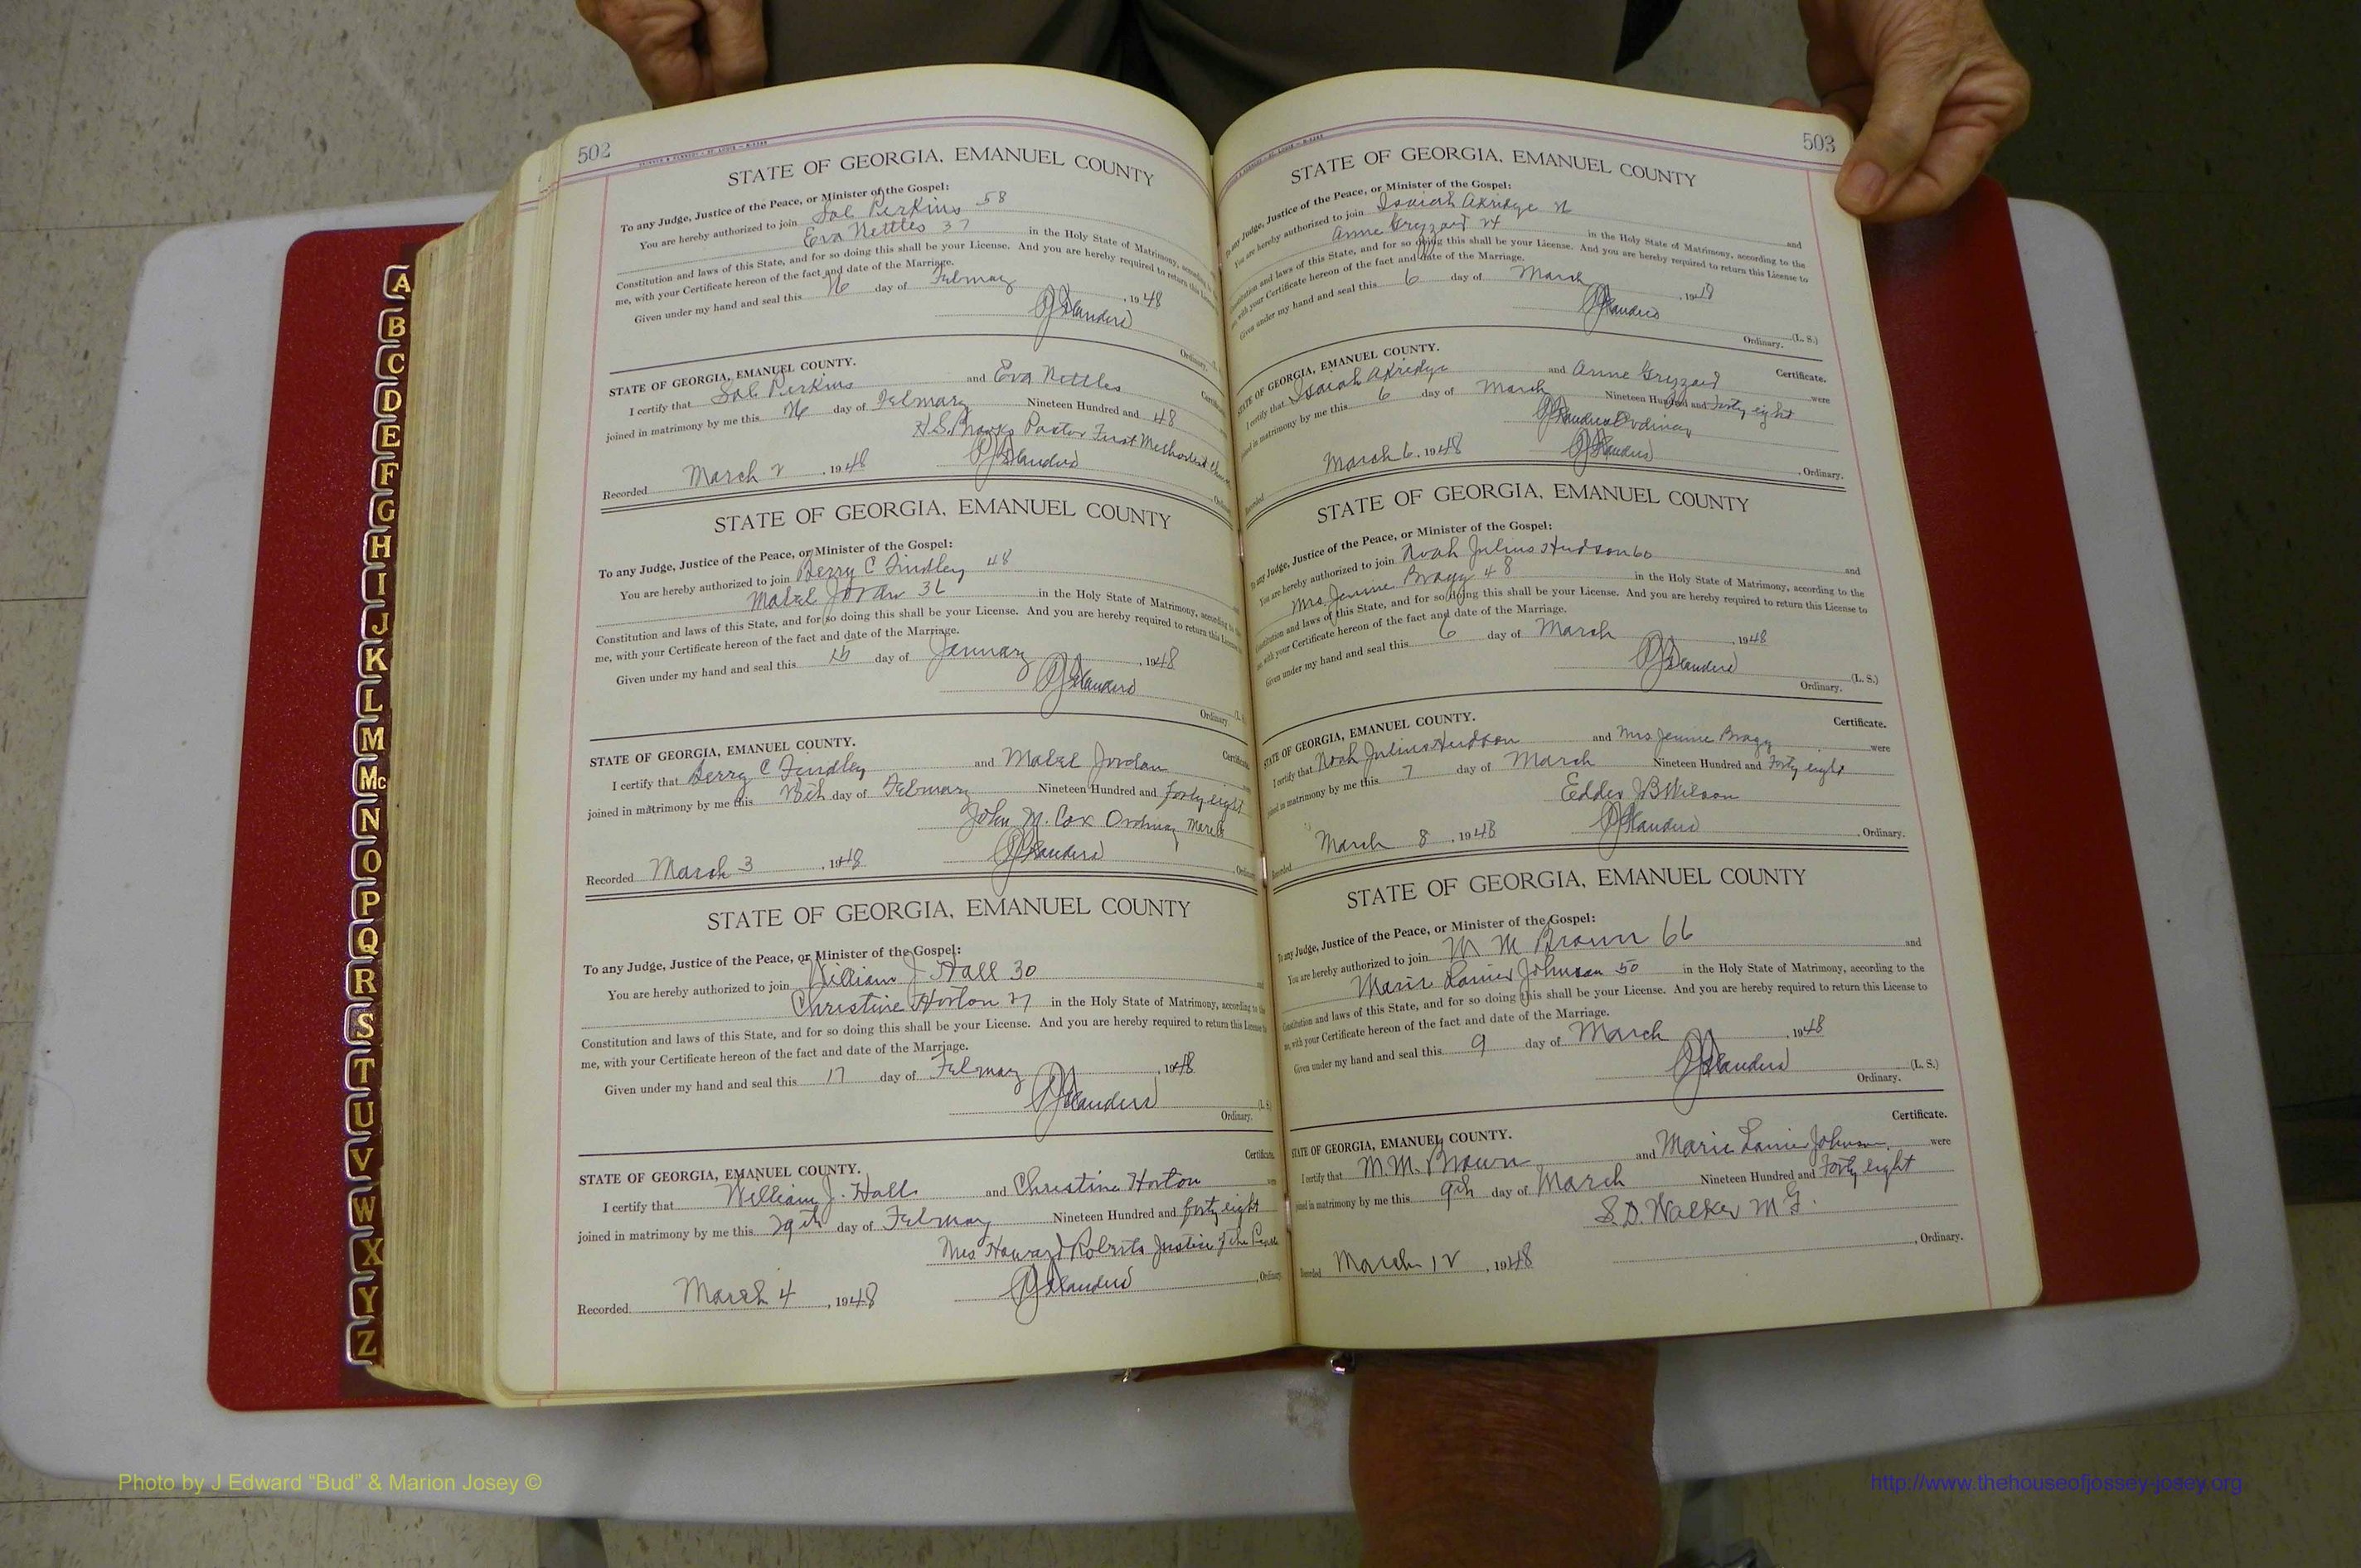 502
STATE OF GEORGIA, EMANUEL COUNTY
To any Judge, Justice of the Peace, or Minister of the Gospel:
You are hereby authorized to join Sol Perkins 58
Eva Nettles 37 in the Holy State of Matrimony, according
Constitution and laws of this State, and for so doing this shall be your License. And you are hereby required to return this
me, with your Certificate hereon of the fact and date of the Marriage.
Given under my hand and seal this 26 day of February, 1948
Ordinary.
STATE OF GEORGIA, EMANUEL COUNTY.
I certify that Sol Perkins and Eva Nettles
joined in matrimony by me this 26 day of February Nineteen Hundred and 48
H.S. Brooks Pastor First Methodist
Recorded March 2, 1948
STATE OF GEORGIA, EMANUEL COUNTY
To any Judge, Justice of the Peace, or Minister of the Gospel:
You are hereby authorized to join Berry C Findley 48
Mabel 36 in the Holy State of Matrimony, according to
Constitution and laws of this State, and for so doing this shall be your License. And you are hereby required to return this
me, with your Certificate hereon of the fact and date of the Marriage.
Given under my hand and seal this day of January, 1948
Ordinary.
STATE OF GEORGIA, EMANUEL COUNTY.
Certificate.
I certify that Berry C Findley and Mabel Jordan
joined in matrimony by me this day of February Nineteen Hundred and forty eight
John M. Cox Ordinary March
Recorded March 3, 1948
STATE OF GEORGIA, EMANUEL COUNTY
To any Judge, Justice of the Peace, or Minister of the Gospel:
You are hereby authorized to join William J Hall 30
Christine Horton 27 in the Holy State of Matrimony, according to the
Constitution and laws of this State, and for so doing this shall be your License. And you are hereby required to return this License to
me, with your Certificate hereon of the fact and date of the Marriage.
Given under my hand and seal this 17 day of February, 1948
Ordinary.
Certificate.
STATE OF GEORGIA, EMANUEL COUNTY.
I certify that William J. Hall and Christine Horton
joined in matrimony by me this 29th day of February Nineteen Hundred and forty eight
Mrs Howard Roberts Justice of the Peace
Recorded March 4, 1948 Ordinary
503
STATE OF GEORGIA, EMANUEL COUNTY
To any Judge, Justice of the Peace, or Minister of the Gospel:
You are hereby authorized to join Isaiah Akridge and
Anne Gryzard 24 in the Holy State of Matrimony, according to the
Constitution and laws of this State, and for so doing this shall be your License. And you are hereby required to return this License to
me, with your Certificate hereon of the fact and date of the Marriage.
Given under my hand and seal this 6 day of March, 1948
(L. S.)
Ordinary.
STATE OF GEORGIA, EMANUEL COUNTY.
Certificate.
I certify that Isaiah Akridge and Anne Gryzard were
joined in matrimony by me this 6 day of March Nineteen Hundred and Forty eight
Ordinary
March 6, 1948, Ordinary.
STATE OF GEORGIA, EMANUEL COUNTY
To any Judge, Justice of the Peace, or Minister of the Gospel:
You are hereby authorized to join Noah Julius Hudson 60 and
Mrs Jennie Bragg 48 in the Holy State of Matrimony, according to the
Constitution and laws of this State, and for so doing this shall be your License. And you are hereby required to return this License to
me, with your Certificate hereon of the fact and date of the Marriage.
Given under my hand and seal this 6 day of March, 1948
(L. S.)
Ordinary.
STATE OF GEORGIA, EMANUEL COUNTY.
Certificate.
I certify that Noah Julius Hudson and Mrs Jennie Bragg were
joined in matrimony by me this 7 day of March Nineteen Hundred and Forty eight
Elder J B Wilson
Recorded March 8, 1948, Ordinary.
STATE OF GEORGIA, EMANUEL COUNTY
To any Judge, Justice of the Peace, or Minister of the Gospel:
You are hereby authorized to join M M Brown 66 and
Marie Lanier Johnson 50 in the Holy State of Matrimony, according to the
Constitution and laws of this State, and for so doing this shall be your License. And you are hereby required to return this License to
me, with your Certificate hereon of the fact and date of the Marriage.
Given under my hand and seal this 9 day of March, 1948
(L. S.)
Ordinary.
Certificate.
STATE OF GEORGIA, EMANUEL COUNTY.
I certify that M.M. Brown and Marie Lanier Johnson were
joined in matrimony by me this 9th day of March Nineteen Hundred and Forty eight
S.D. Walker M G.
Recorded March 12, 1948, Ordinary.
A
B
C
D
E
F
G
H
I
J
K
L
M
Mc
N
O
P
Q
R
S
T
U
V
W
X
Y
Z
Photo by J Edward “Bud” & Marion Josey ©
http://www.thehouseofjossey-josey.org